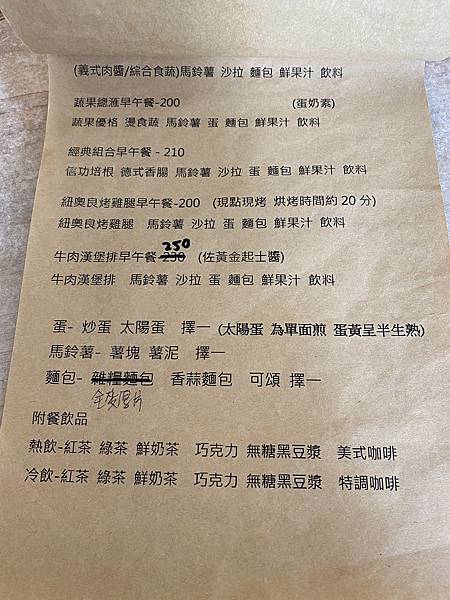 (義式肉醬/綜合食蔬)馬鈴薯 沙拉 麵包 鮮果汁 飲料
蔬果總滙早午餐-200 (蛋奶素)
蔬果優格 燙食蔬 馬鈴薯 蛋 麵包 鮮果汁 飲料
經典組合早午餐 - 210
信功培根 德式香腸 馬鈴薯 沙拉 蛋 麵包 鮮果汁 飲料
紐奧良烤雞腿早午餐-200 (現點現烤 烘烤時間約20分)
紐奧良烤雞腿 馬鈴薯 沙拉 蛋 麵包 鮮果汁 飲料
250
牛肉漢堡排早午餐-230 (佐黃金起士醬)
牛肉漢堡排 馬鈴薯 沙拉 蛋 麵包 鮮果汁 飲料
蛋- 炒蛋 太陽蛋 擇一 (太陽蛋 為單面煎 蛋黃呈半生熟)
馬鈴薯- 薯塊 薯泥 擇一
麵包- 雜糧麵包 香蒜麵包 可頌 擇一
全麥厚片
附餐飲品
熱飲-紅茶 綠茶 鮮奶茶 巧克力 無糖黑豆漿 美式咖啡
冷飲-紅茶 綠茶 鮮奶茶 巧克力 無糖黑豆漿 特調咖啡